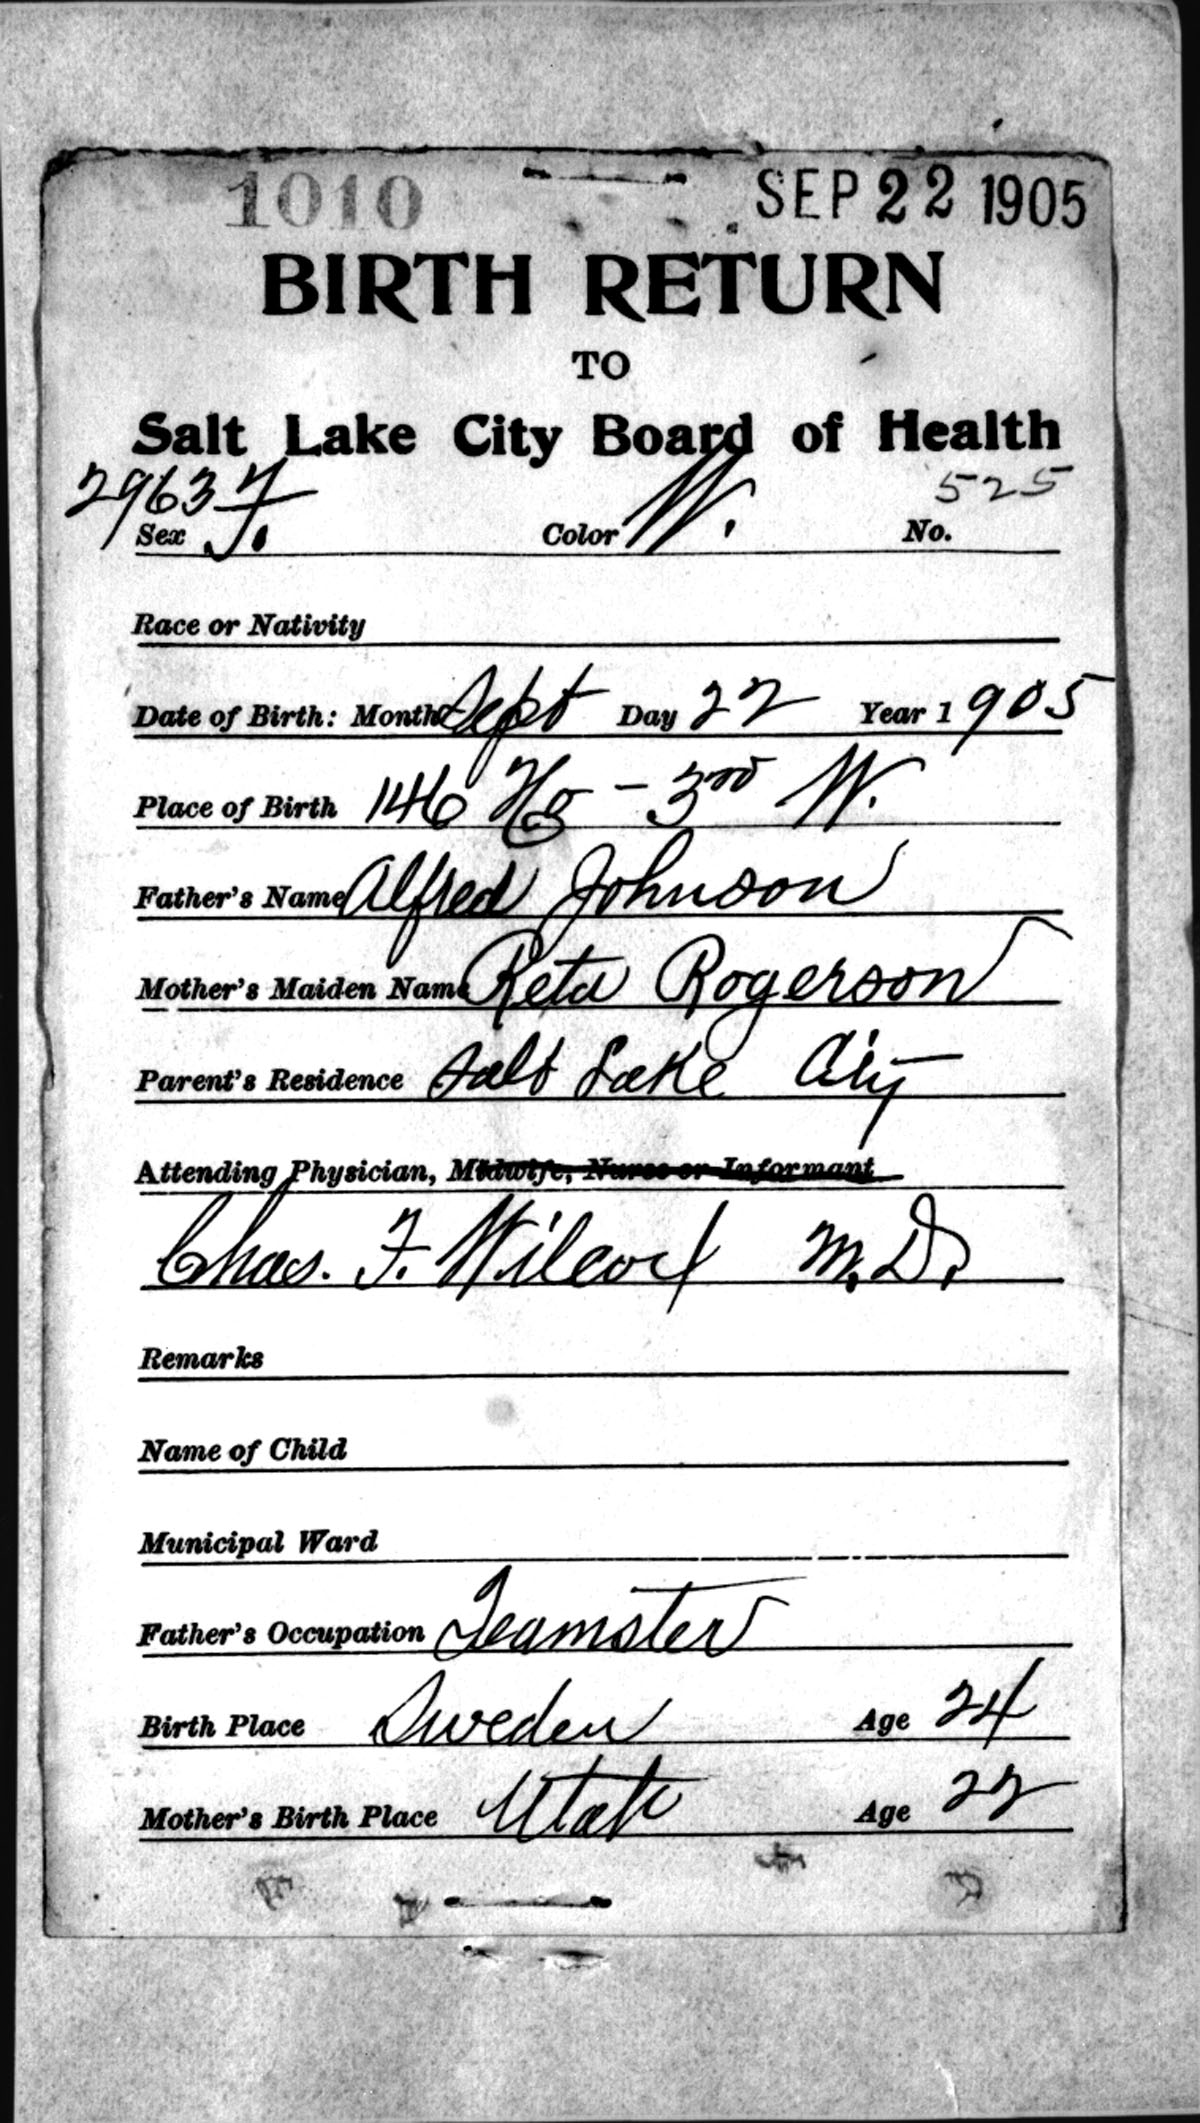 1010 SEP 22 1905
BIRTH RETURN
TO
Salt Lake City Board of Health
29637 525
Sex F. Color W. No.
Race or Nativity
Date of Birth: Month Sept Day 22 Year 1905
Place of Birth 146 - 3rd W.
Father's Name Alfred Johnson
Mother's Maiden Name Reta Rogerson
Parent's Residence Salt Lake City
Attending Physician, Midwife, Nurse or Informant
Chas. F. Wilcox M.D.
Remarks
Name of Child
Municipal Ward
Father's Occupation Teamster
Birth Place Sweden Age 24
Mother's Birth Place Utah Age 22